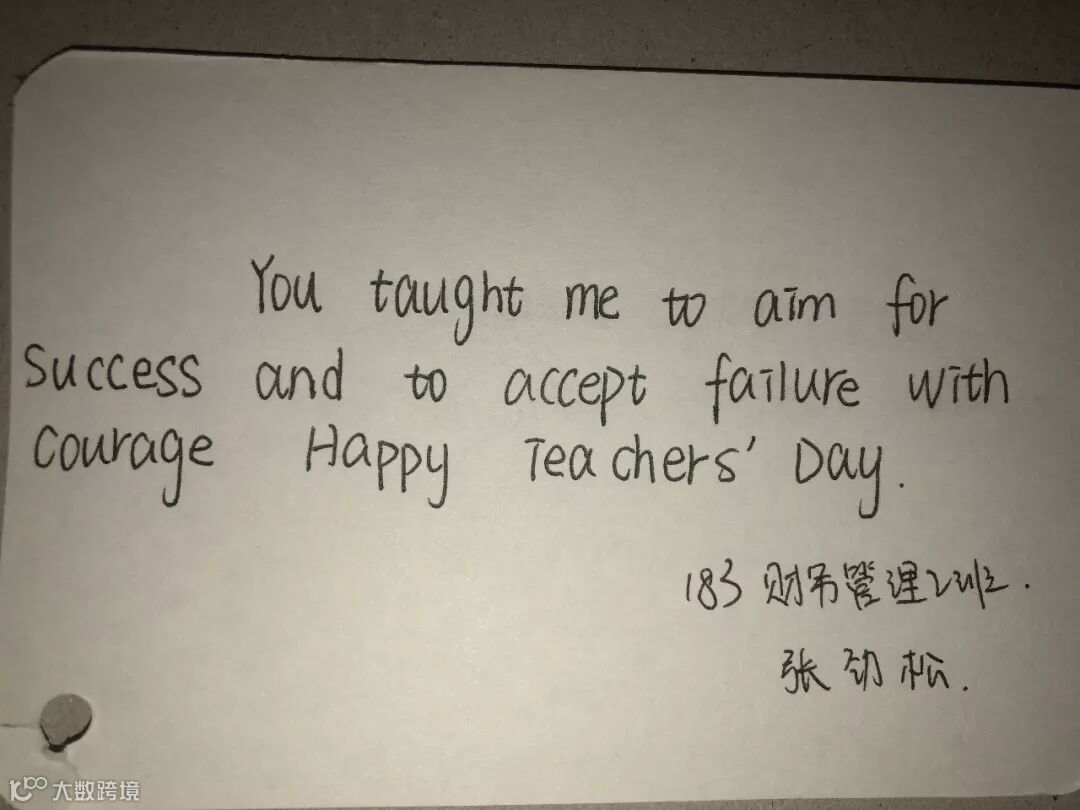 You taught me to aim for
Success and to accept failure with
courage Happy Teachers' Day.
183 财务管理2班.
张劲松.
大数跨境